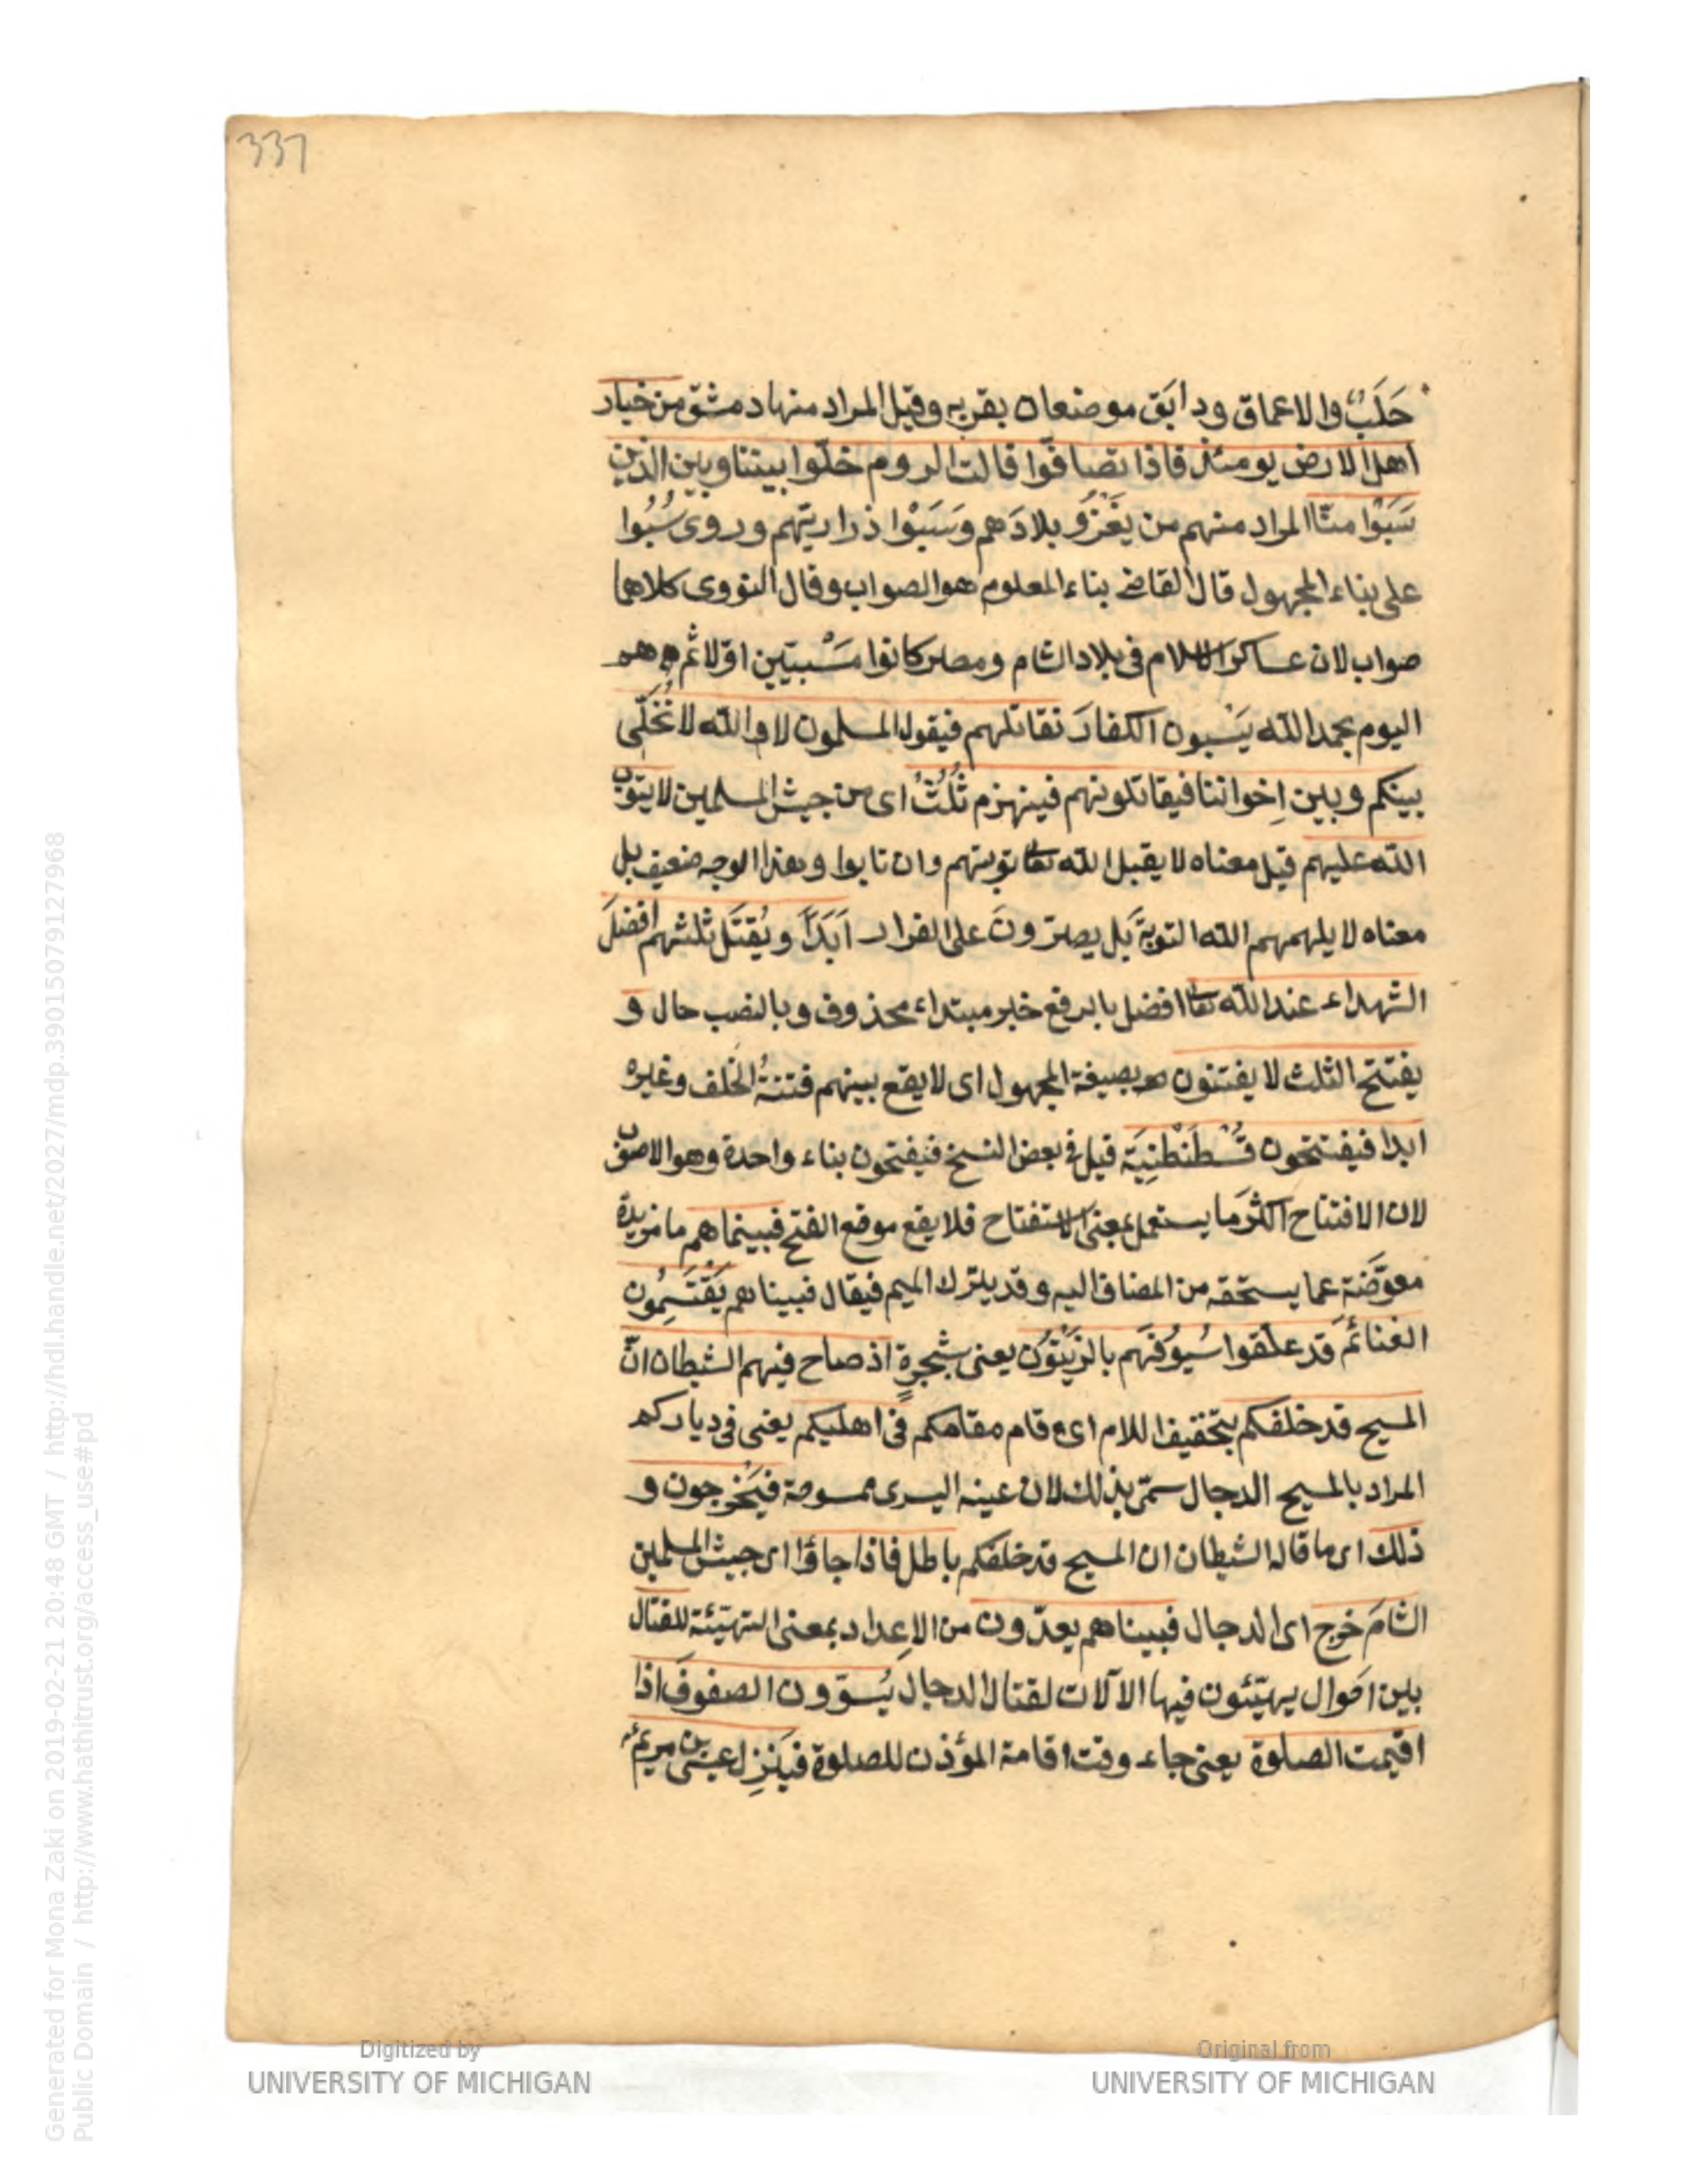 337
حَلَبُ والاعماق ودابَق موضعان بقربه وقيل المراد منها دمشق من خيار
اهل الارض يومئذ فاذا تصافّوا قالت الروم خلّوا بيننا وبين الذين
سَبَوْا منّا المراد منهم من يَغْزُو بلادَهم وَسَبَوْا ذراريّهم وروى سُبُوا
على بناء المجهول قال القاضى بناء المعلوم هو الصواب وقال النووى كلاهما
صواب لان عساكر الاسلام فى بلاد الشام ومصر كانوا مَسْبيّين اوّلا ثم هم
اليوم بحمد الله يَسْبون الكفارَ نقاتلهم فيقول المسلمون لا والله لا نُخَلّى
بينكم وبين اِخواننا فيقاتلونهم فينهزم ثُلُثٌ اى من جيش المسلمين لا يتوب
الله عليهم قيل معناه لا يقبل الله تعا توبتهم وان تابوا وهذا الوجه ضعيف بل
معناه لا يلهمهم الله التوبةَ بل يصرّونَ على الفرار اَبَدًا ويُقتَل ثلثهم افضلَ
الشهداء عند الله تعا افضل بالرفع خبر مبتداء محذوف وبالنصب حال و
يفتتح الثلث لا يفتنون هو بصيغة المجهول اى لا يقع بينهم فتنةُ الخلف وغيره
ابدا فيفتتحون قُسْطَنْطِنِيَة قيل فى بعض النسخ فيفتحون بتاء واحدة وهو الاصوب
لان الافتتاح اكثرَ ما يستعمل بمعنى الاستفتاح فلا يقع موقع الفتح فبينماهم ما مزيدة
معوّضة عما يستحقه من المضاف اليه وقد يترك الميم فيقال فبيناهم يَقْتَسِمُون
الغنائمَ قد علّقوا سُيُوفَهم بالزَيْتُون يعنى بشجرةٍ اذ صاح فيهم الشيطان انّ
المسيح قد خلفكم بتخفيف اللام اى قام مقامكم فى اهليكم يعنى فى دياركم
المراد بالمسيح الدجال سمّى بذلك لان عينه اليسرى ممسوحة فيَخْرجون و
ذلك اى ما قاله الشيطان ان المسيح قد خلفكم باطل فاذا جاؤا اى جيش المسلمين
الشامَ خرج اى الدجال فبيناهم يعدّون من الاِعداد بمعنى التهيئة للقتال
بين احوال يهيّئون فيها الآلات لقتال الدجال يُسَوّون الصفوفَ اذا
اقيمت الصلوة يعنى جاء وقت اقامة المؤذن للصلوة فيَنْزِل عيسى بن مريم
Digitized by
UNIVERSITY OF MICHIGAN
Original from
UNIVERSITY OF MICHIGAN
Generated for Mona Zaki on 2019-02-21 20:48 GMT / http://hdl.handle.net/2027/mdp.39015079127968
Public Domain / http://www.hathitrust.org/access_use#pd